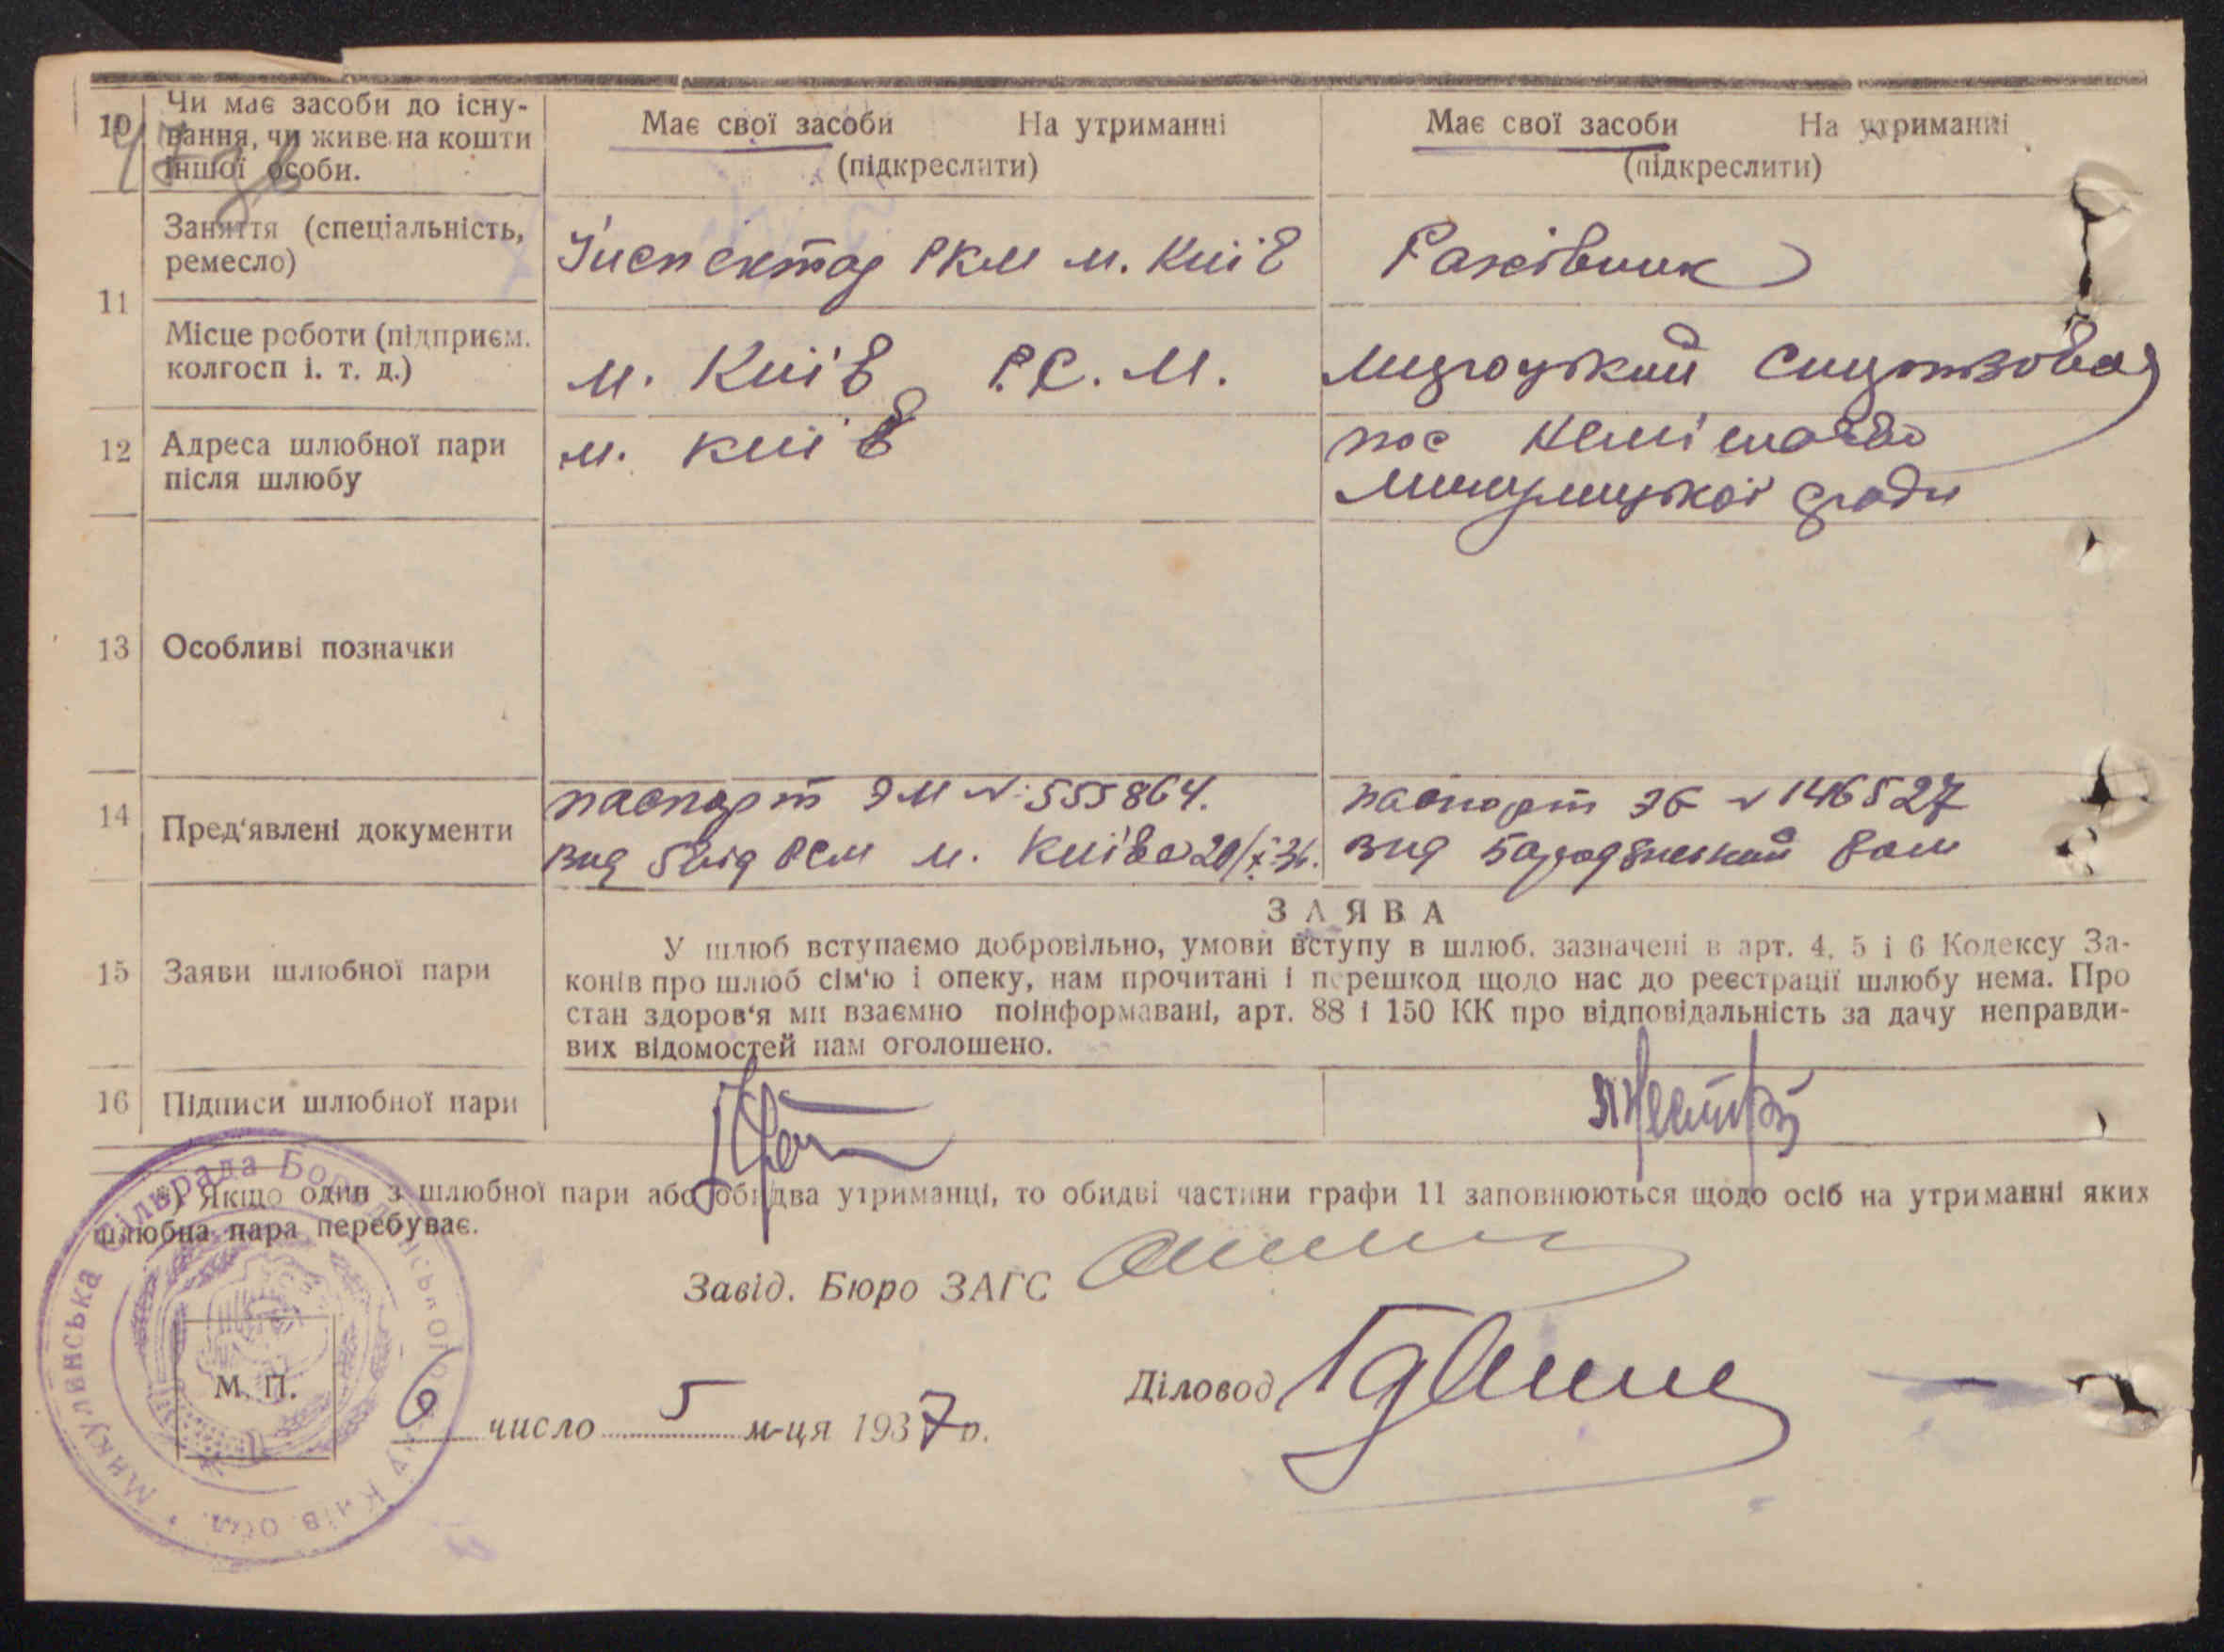 10
Чи має засоби до існу-
вання, чи живе на кошти
іншої особи.
Має свої засоби На утриманні
(підкреслити)
Має свої засоби На утриманні
(підкреслити)
11
Заняття (спеціальність,
ремесло)
Інспектор РКМ м. Київ
Рахівник
Місце роботи (підприєм.
колгосп і. т. д.)
м. Київ Р.С.М.
Мироцький
12
Адреса шлюбної пари
після шлюбу
м. Київ
пос
ради
13
Особливі позначки
14
Пред'явлені документи
паспорт ЭМ №: 555864.
вид 5 від РСМ м. Київа 20/X-36.
паспорт ЭБ № 146527
вид Бородянський
15
Заяви шлюбної пари
ЗАЯВА
У шлюб вступаємо добровільно, умови вступу в шлюб, зазначені в арт. 4, 5 і 6 Кодексу За-
конів про шлюб сім'ю і опеку, нам прочитані і перешкод щодо нас до реєстрації шлюбу нема. Про
стан здоров'я ми взаємно поінформавані, арт. 88 і 150 КК про відповідальність за дачу неправди-
вих відомостей нам оголошено.
16
Підписи шлюбної пари
*) Якщо один з шлюбної пари або обидва утриманці, то обидві частини графи 11 заповнюються щодо осіб на утриманні яких
шлюбна пара перебуває.
Завід. Бюро ЗАГС
Діловод
М. П.
6 число 5 м-ця 1937 р.
Микулинська Сільрада Бородянського Київ. обл.